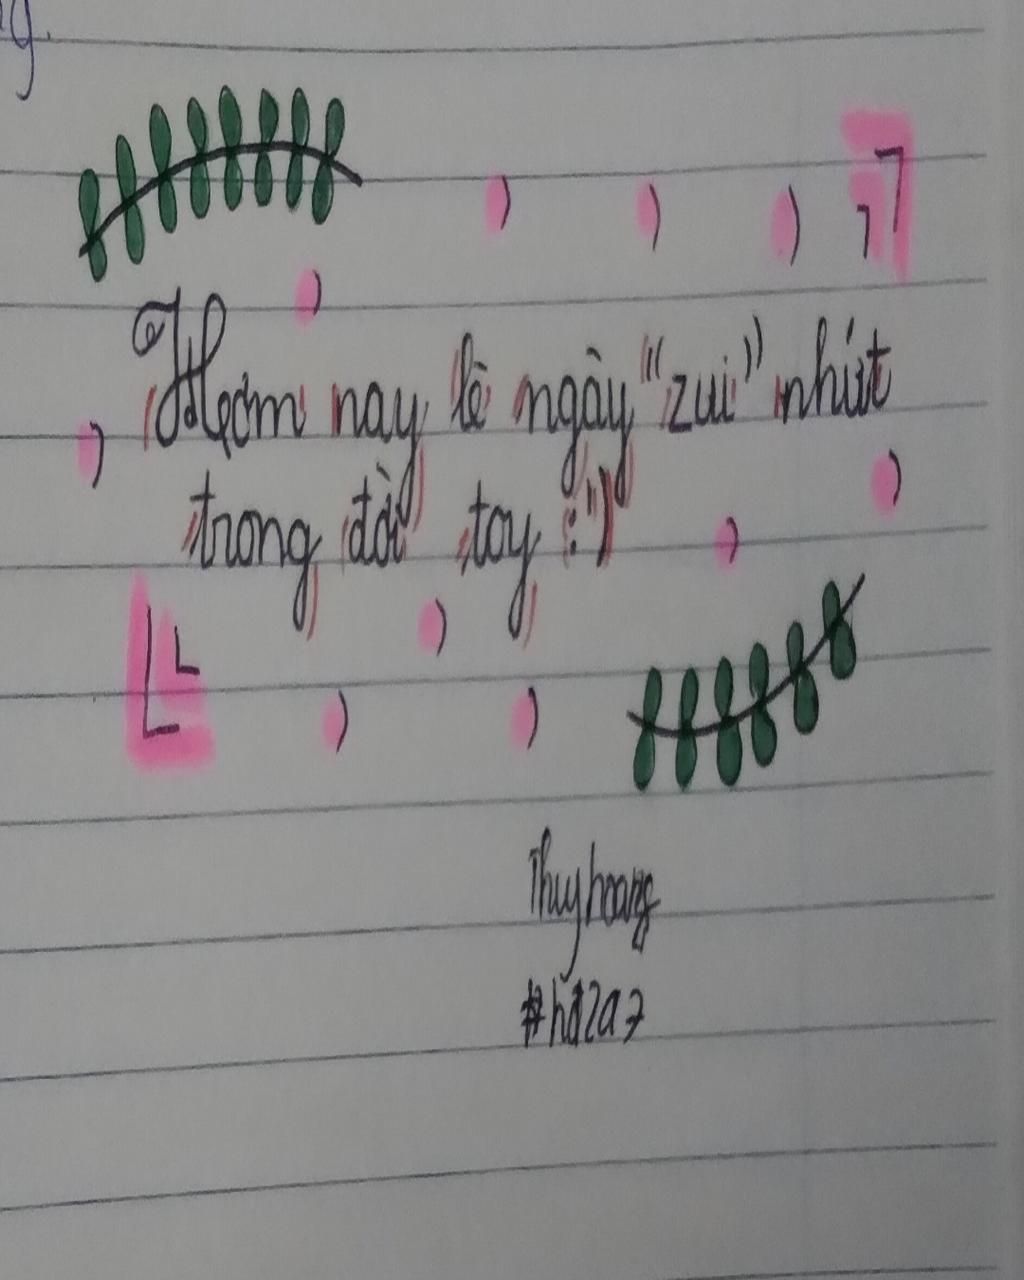 Hơm nay lè ngày "zui" nhứt
trong đời toy :")
Thuyhoang
#hd2a7